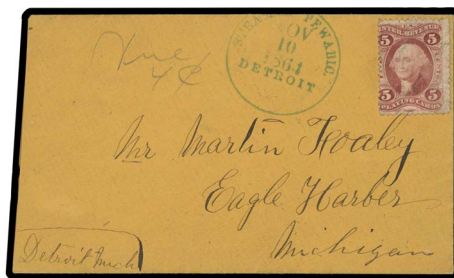 Due
4¢
STEAMER PEWABIC.
NOV
10
1864
DETROIT
INTER. REVENUE
5 5
5 5
PLAYING CARDS
Mr Martin Foaley
Eagle Harbor
Michigan
Detroit Mich